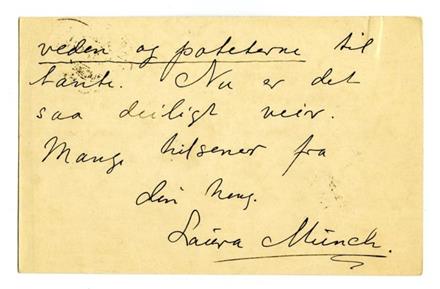 veden og poteterne til
tante. Nu er det
saa deiligt veir.
Mange hilsener fra
din heng.
Laura Munch.